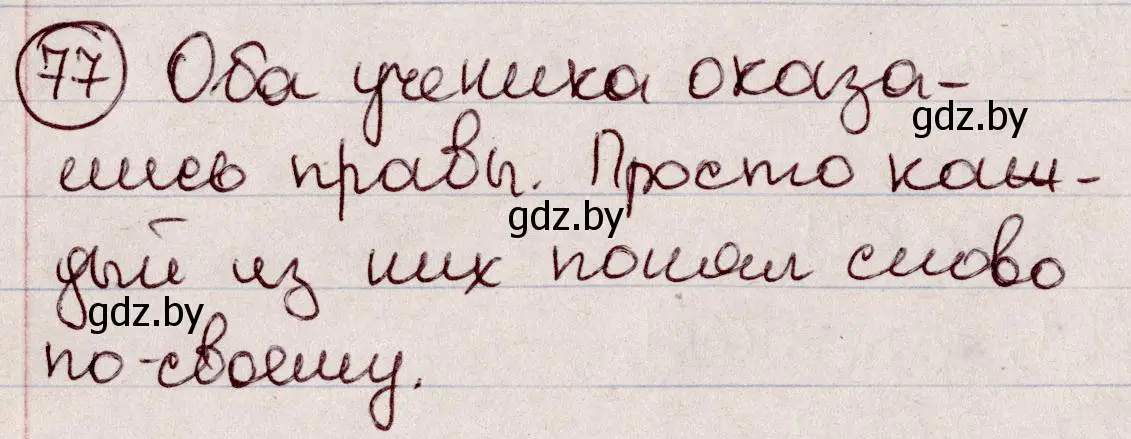 77 Оба ученика оказа-
gdz.by
лись правы. Просто каж-
gdz.by
дый из них понял слово
gdz.by
по-своему.